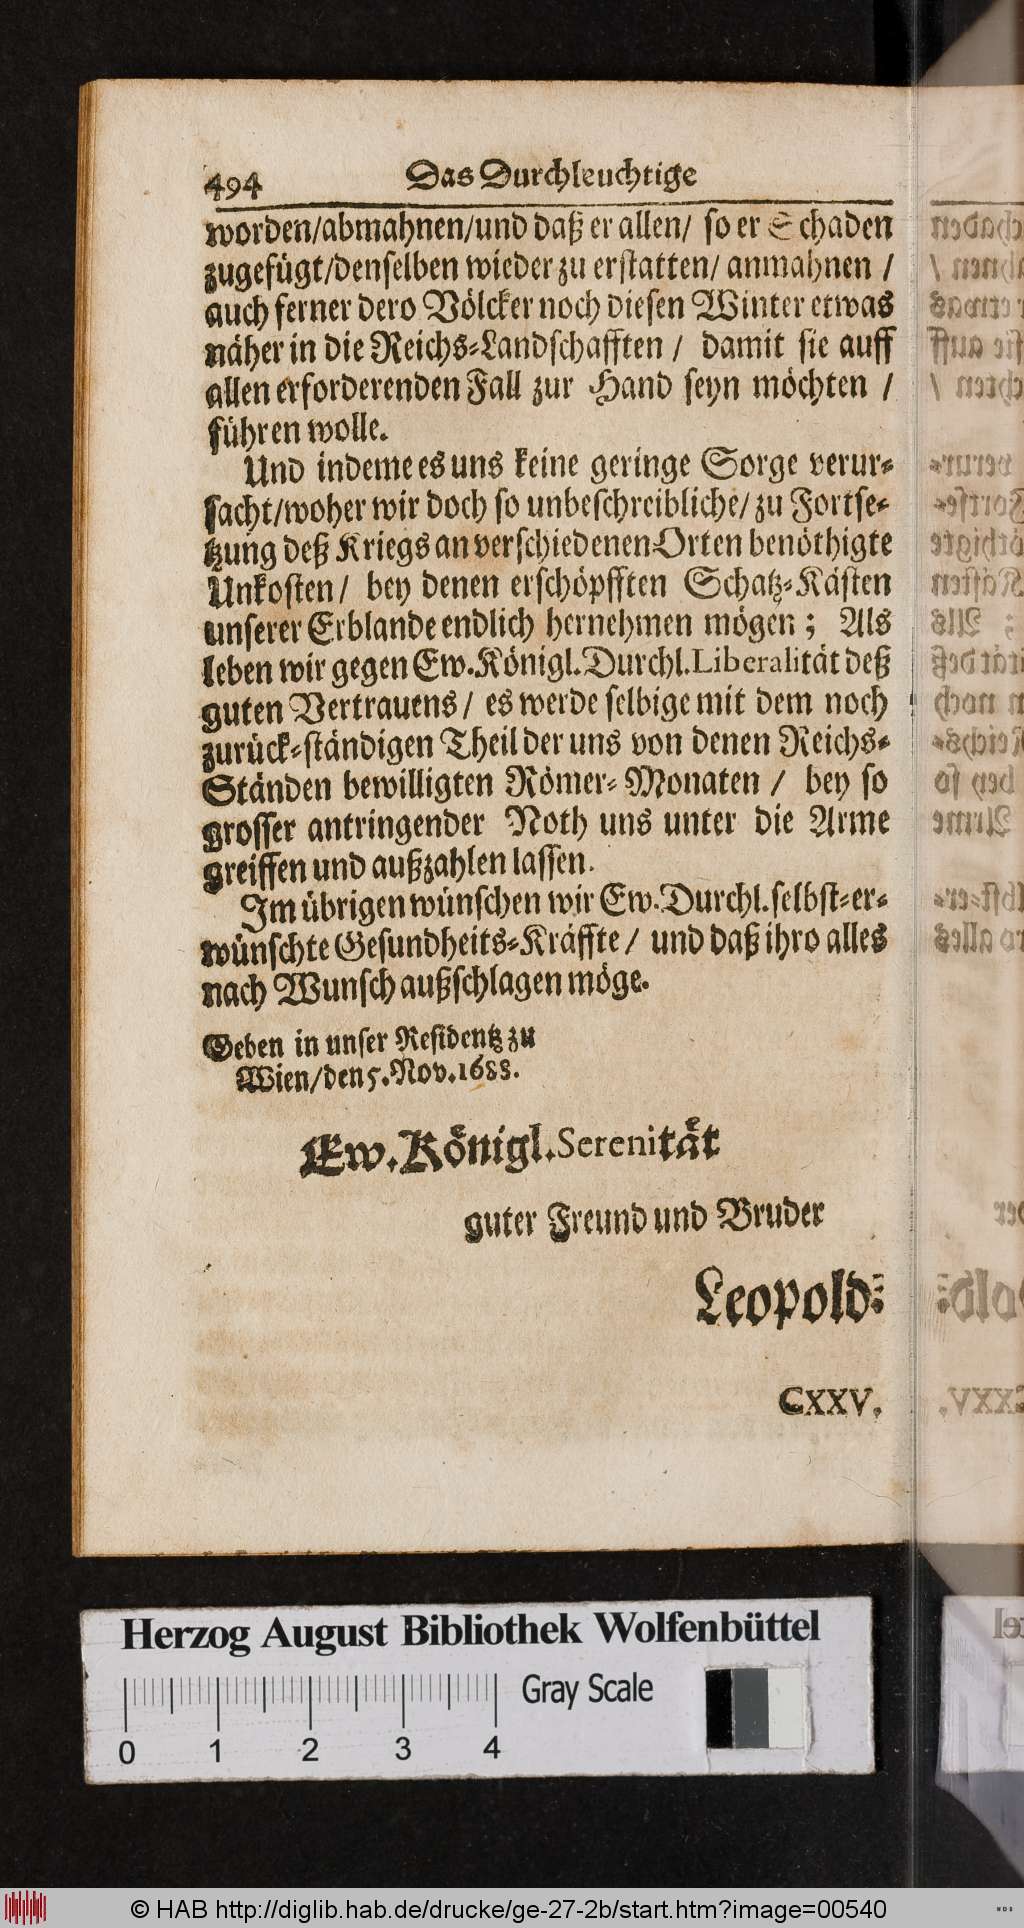 494 Das Durchleuchtige
worden/abmahnen/und daß er allen/ so er Schaden
zugefügt/denselben wieder zu erstatten/ anmahnen /
auch ferner dero Völcker noch diesen Winter etwas
näher in die Reichs-Landschafften / damit sie auff
allen erforderenden Fall zur Hand seyn möchten /
führen wolle.
Und indeme es uns keine geringe Sorge verur-
sacht/woher wir doch so unbeschreibliche/ zu Fortse-
tzung deß Kriegs an verschiedenen Orten benöthigte
Unkosten/ bey denen erschöpfften Schatz-Kästen
unserer Erblande endlich hernehmen mögen; Als
leben wir gegen Ew. Königl. Durchl. Liberalität deß
guten Vertrauens/ es werde selbige mit dem noch
zurück-ständigen Theil der uns von denen Reichs-
Ständen bewilligten Römer-Monaten / bey so
grosser antringender Noth uns unter die Arme
greiffen und außzahlen lassen.
Im übrigen wünschen wir Ew. Durchl. selbst-er-
wünschte Gesundheits-Kräffte/ und daß ihro alles
nach Wunsch außschlagen möge.
Geben in unser Residentz zu
Wien/den 5. Nov. 1688.
Ew. Königl. Serenität
guter Freund und Bruder
Leopold:
CXXV.
Herzog August Bibliothek Wolfenbüttel
Gray Scale
0 1 2 3 4
© HAB http://diglib.hab.de/drucke/ge-27-2b/start.htm?image=00540